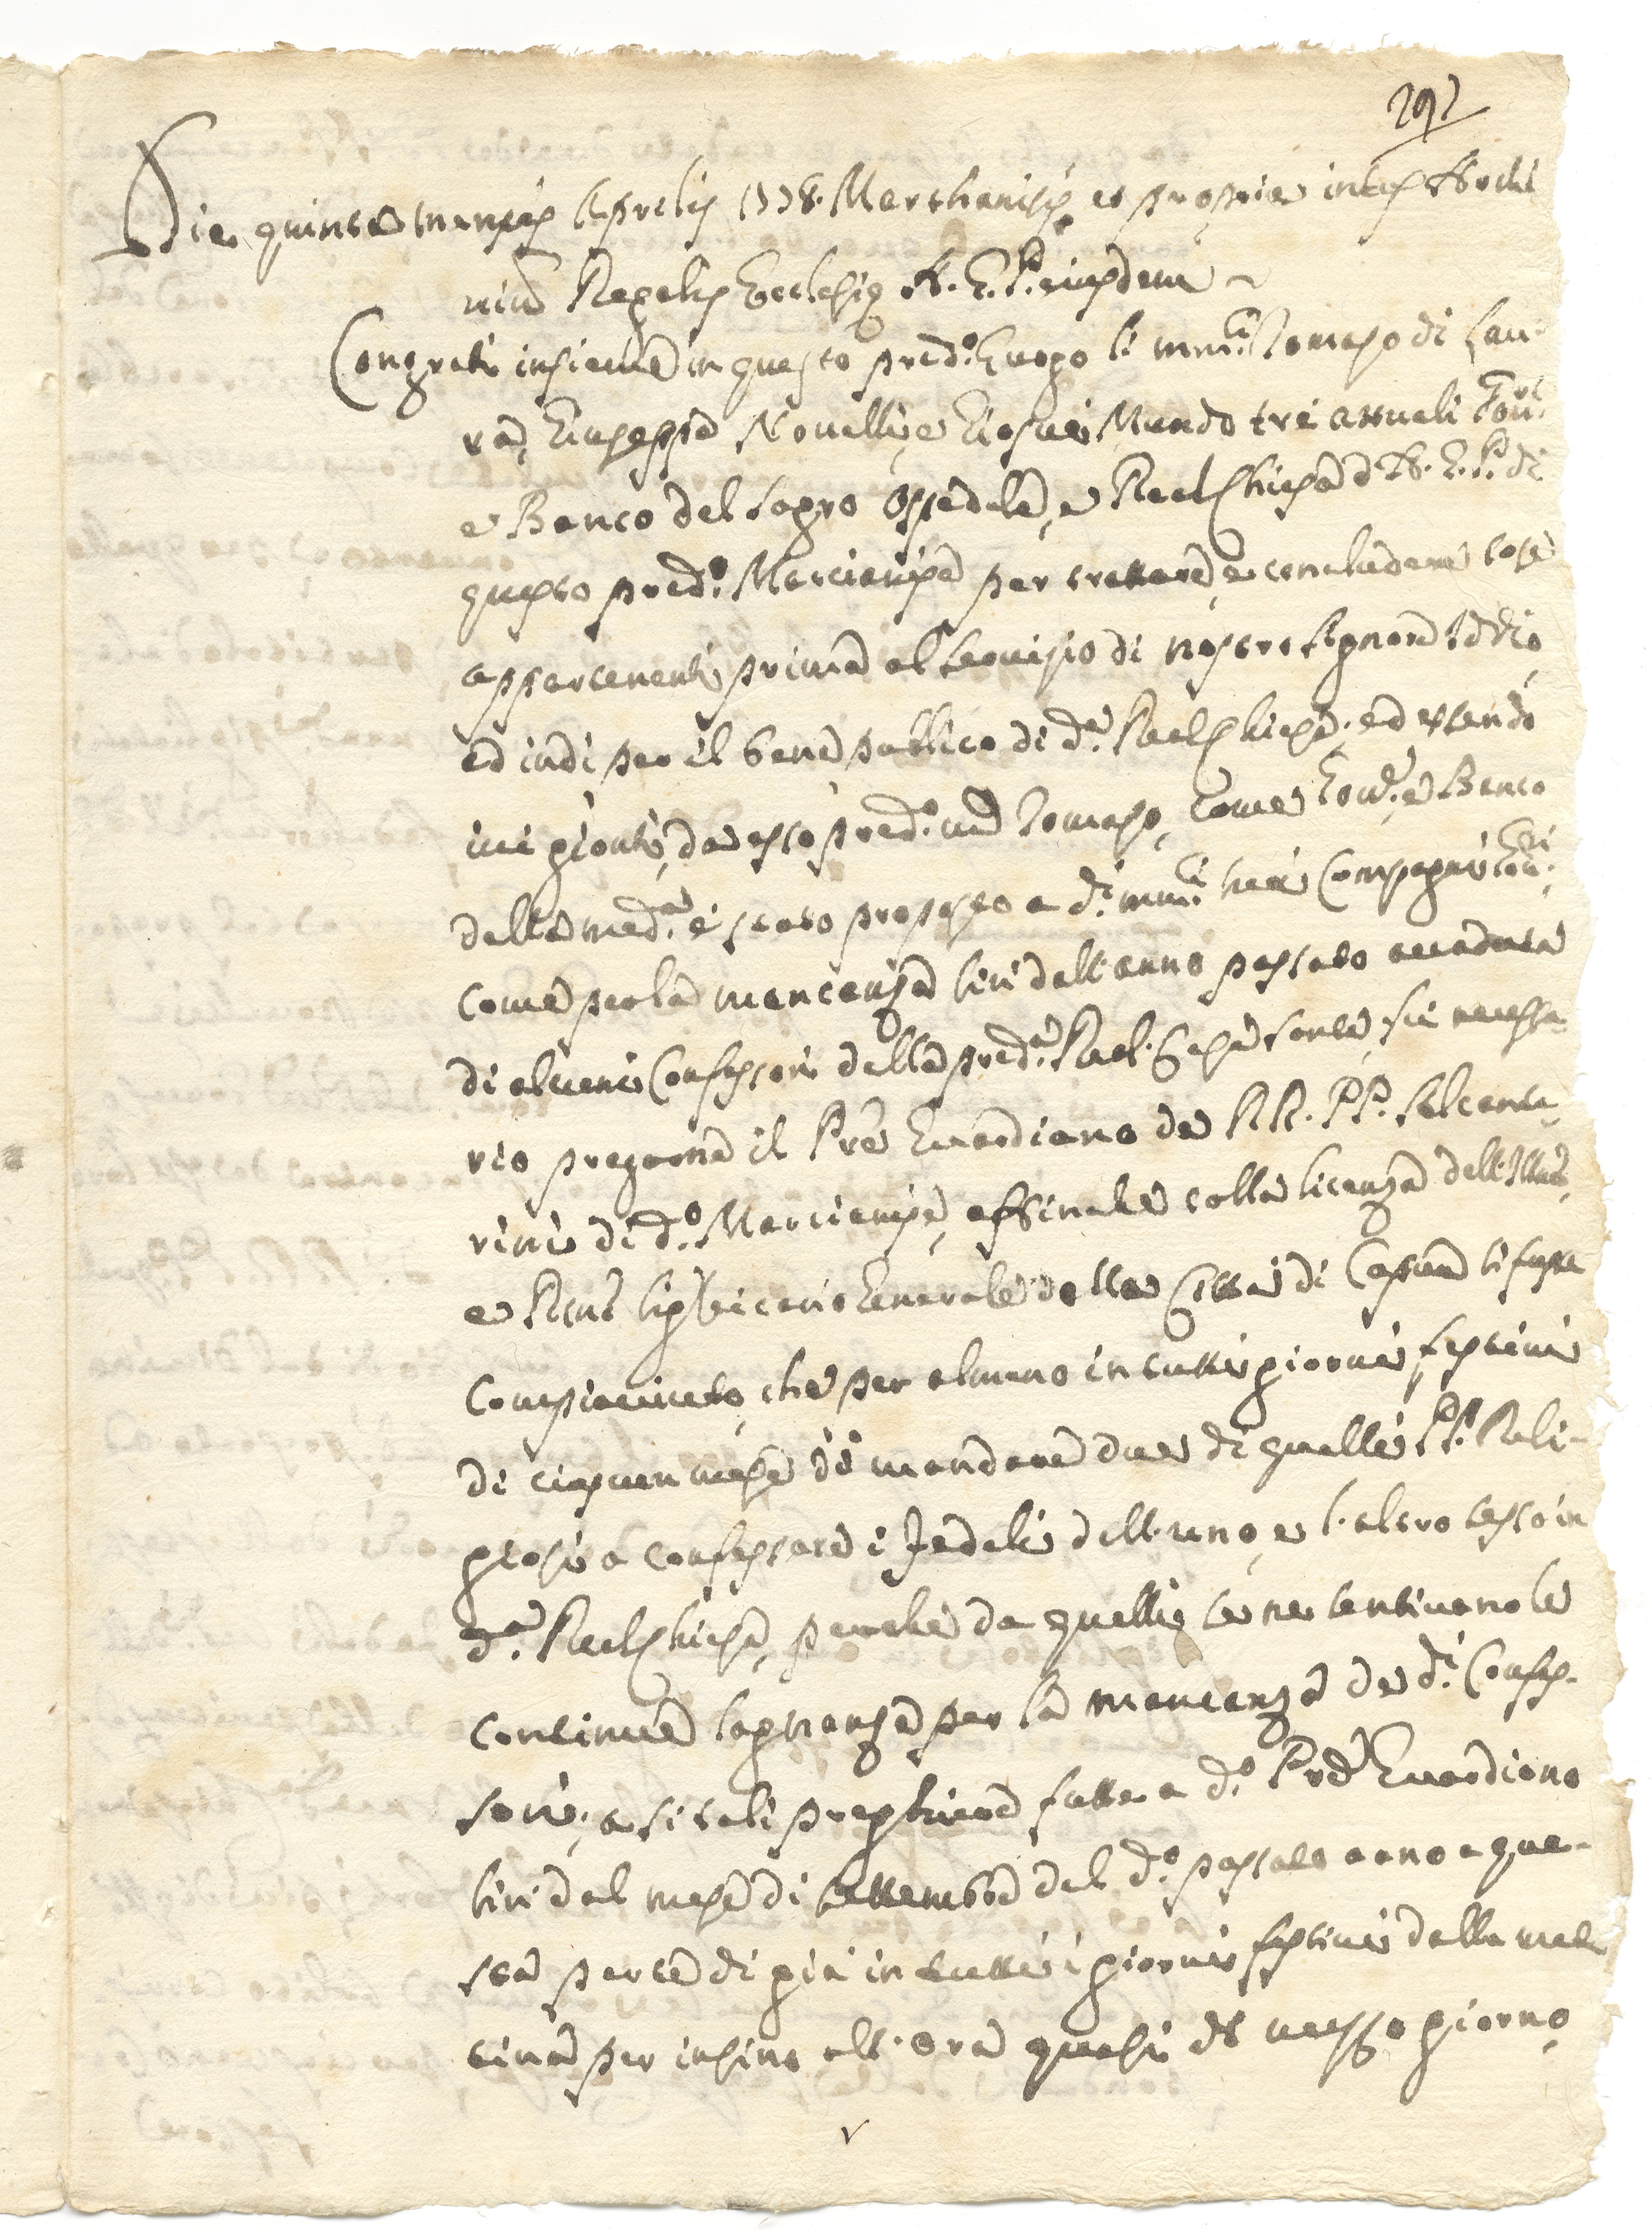 292
Die quinto mensis Aprelis 1778. Marchanisij et proprie intus Atrium
Regalis Ecclesię A. G. P. eiusdem ~
Congreti insieme in questo pred.o Luogo li mm.ci Tomaso di Lau=
ro, Giuseppe Novelli, e Giosuè Mundo tre attuali Gov.ri
e Banco del Sagro Ospedale, e Real Chiesa d' A. G. P. di
questo pred.o Marcianise per trattare, e concludere cose
appartenenti prima al servisio di nostro Signore Iddio,
ed indi per il bene publico di d.a Real Chiesa; ed essendo
ivi gionti, da esso pred.o m.co Tomaso, come Gov.re e Banco
della med.a è stato proposto a d.i mm.ci suoi Compagni Gov.ri
come per la mancanza sin dall'anno passato accaduta
di alcuni Confessori della pred.a Real Casa santa, fù necessa=
rio pregarne il Pre Guardiano de RR. PP. Alcanta=
rini di d.o Marcianise, affinche colla licenza dell'Illmo,
e Rmo Sig.r Vicario Generale della Città di Capua si fusse
compiaciuto, che per almeno in tutti giorni festivi
di ciascun mese di mandare due di quelli PP. Reli=
giosi a confessare i fedeli dell'uno, e l'altro sesso in
d.a Real Chiesa, perche da quelli se ne sentivano le
continue lagnanze per la mancanza de d.i Confes=
sori; e si tali preghiere fatte a d.o Pre Guardiano
sin dal mese di Settembre del d.o passato anno a que=
sta parte di già in tutti i giorni festivi della mat
tina per insino all'ora quasi di mezzo giorno,